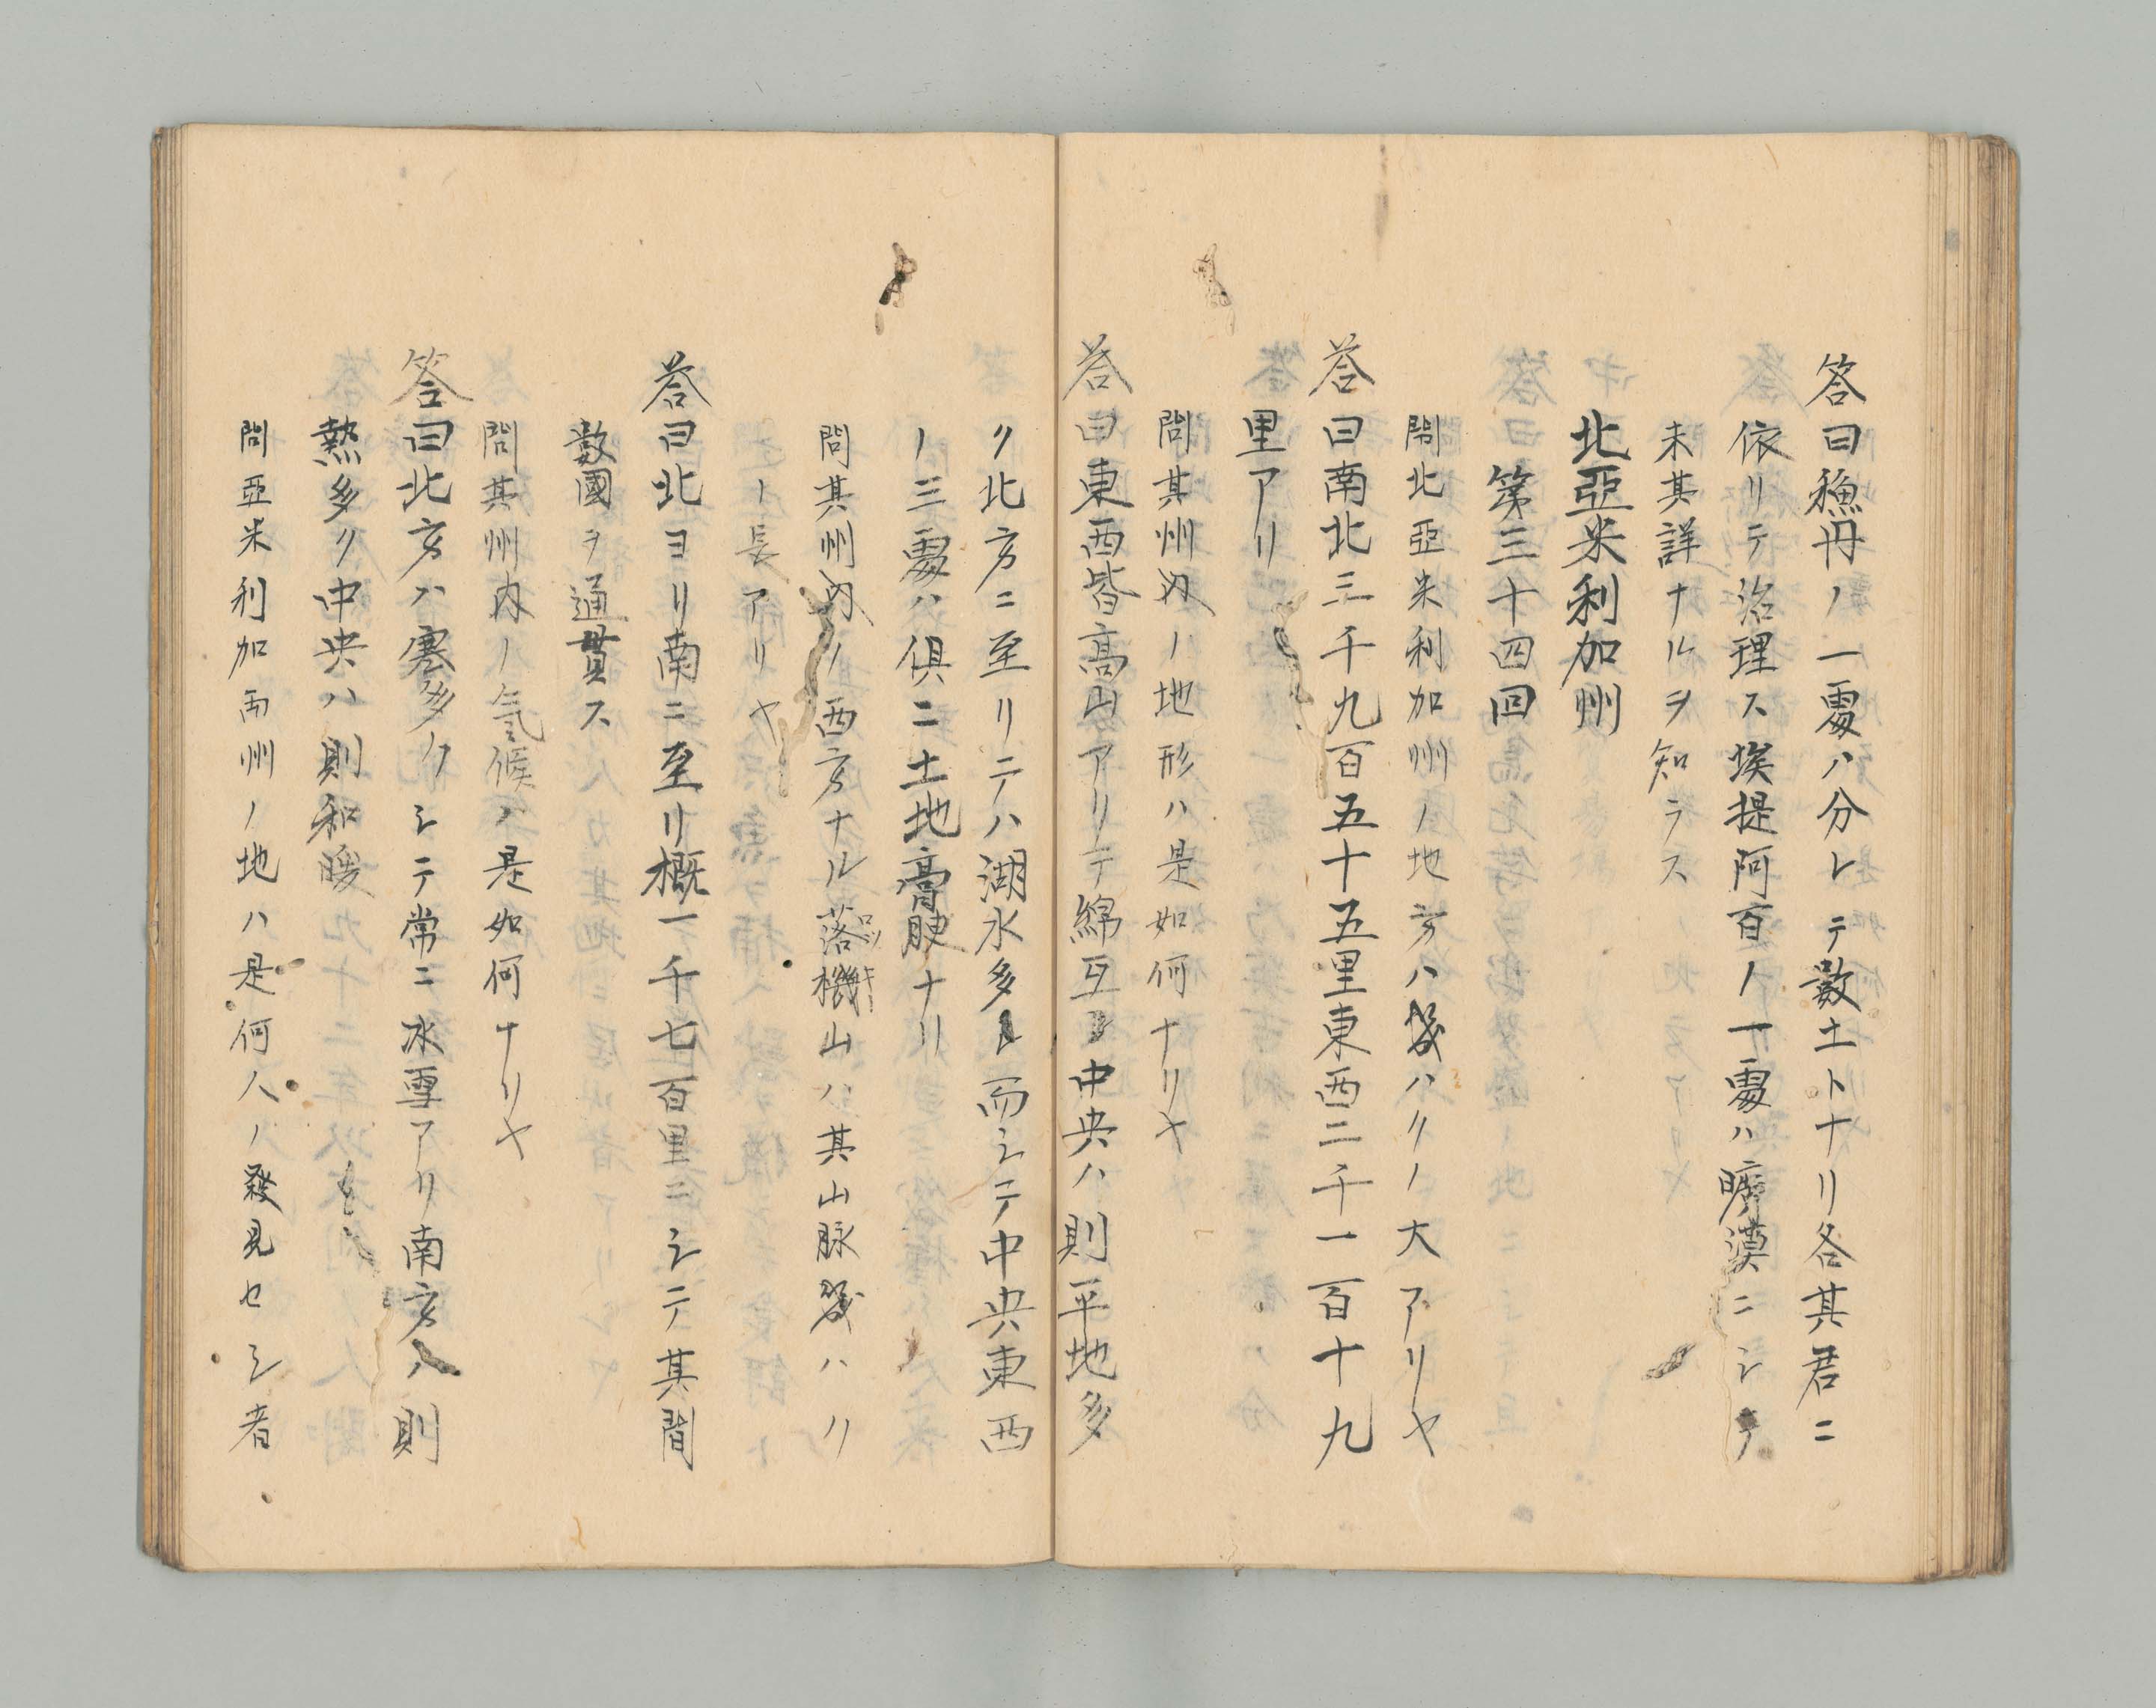 答曰蘓丹ノ一䖏ハ分レテ數土トナリ各其君ニ
依リテ治理ス埃提阿百ノ一䖏ハ曠漠ニシテ
未其詳ナルヲ知ラス
北亞米利加州
第三十四回
問北亞米利加州ノ地方ハ幾ハクノ大アリヤ
答曰南北三千九百五十五里東西二千一百十九
里アリ
問其州内ノ地形ハ是如何ナリヤ
答曰東西皆髙山アリテ綿亙シ中央ハ則平地多
ク北方ニ至リテハ湖水多シ而シテ中央東西
ノ三䖏ハ俱ニ土地膏腴ナリ
問其州内ノ西方ナル落機山ハ其山脉幾ハク
ロツキ
ノ長アリヤ
答曰北ヨリ南ニ至リ概一千七百里ニシテ其間
數國ヲ通貫ス
問其州内ノ氣候ハ是如何ナリヤ
答曰北方ハ寒多クシテ常ニ氷雪アリ南方ハ則
熱多ク中央ハ則和暖
問亞米利加両州ノ地ハ是何人ノ發見セシ者